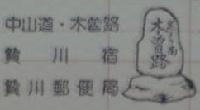 中山道・木曽路
贄川宿
贄川郵便局
木曽路